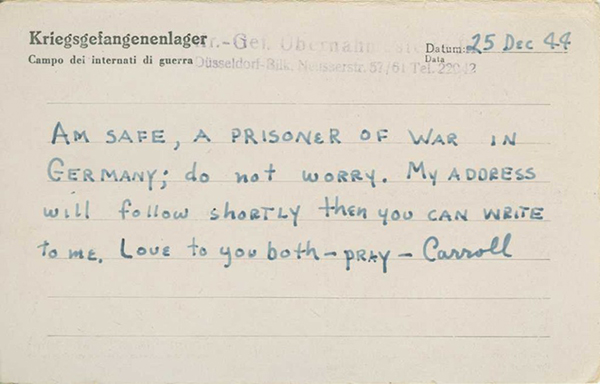 Kriegsgefangenenlager
Campo dei internati di guerra
Kr.-Gef. Übernahmestelle
Düsseldorf-Bilk, Neusserstr. 57/61 Tel. 22042
Datum: 25 Dec 44
Data
AM SAFE, A PRISONER OF WAR IN
GERMANY; do not WORRY. My ADDRESS
will follow shortly then you CAN WRITE
to me. Love to you both – PRAY – Carroll